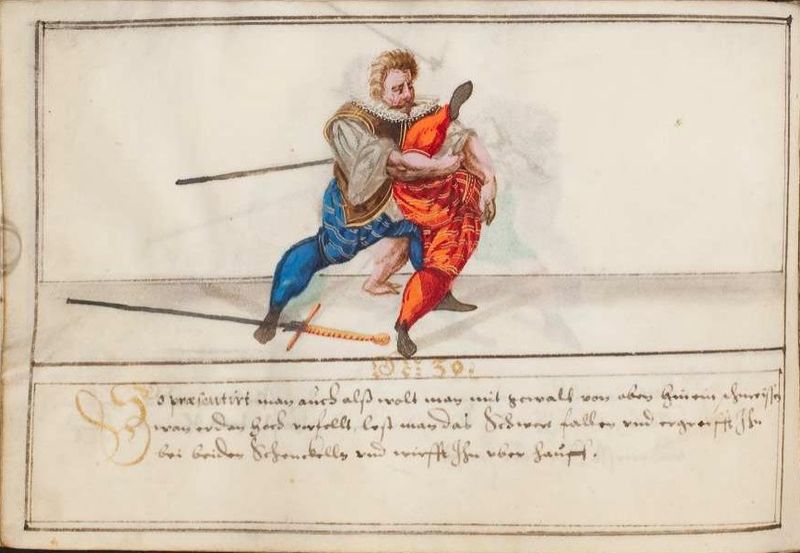 No: 30.
So præsentirt man auch alß wolt man mit gewalt von oben hinein schmeissen
wan er dan hoch verfellt, lest man das Schwert fallen vnd ergreifft Ihn
bei beiden Schenckelln vnd wirfft Ihn vber haupt.